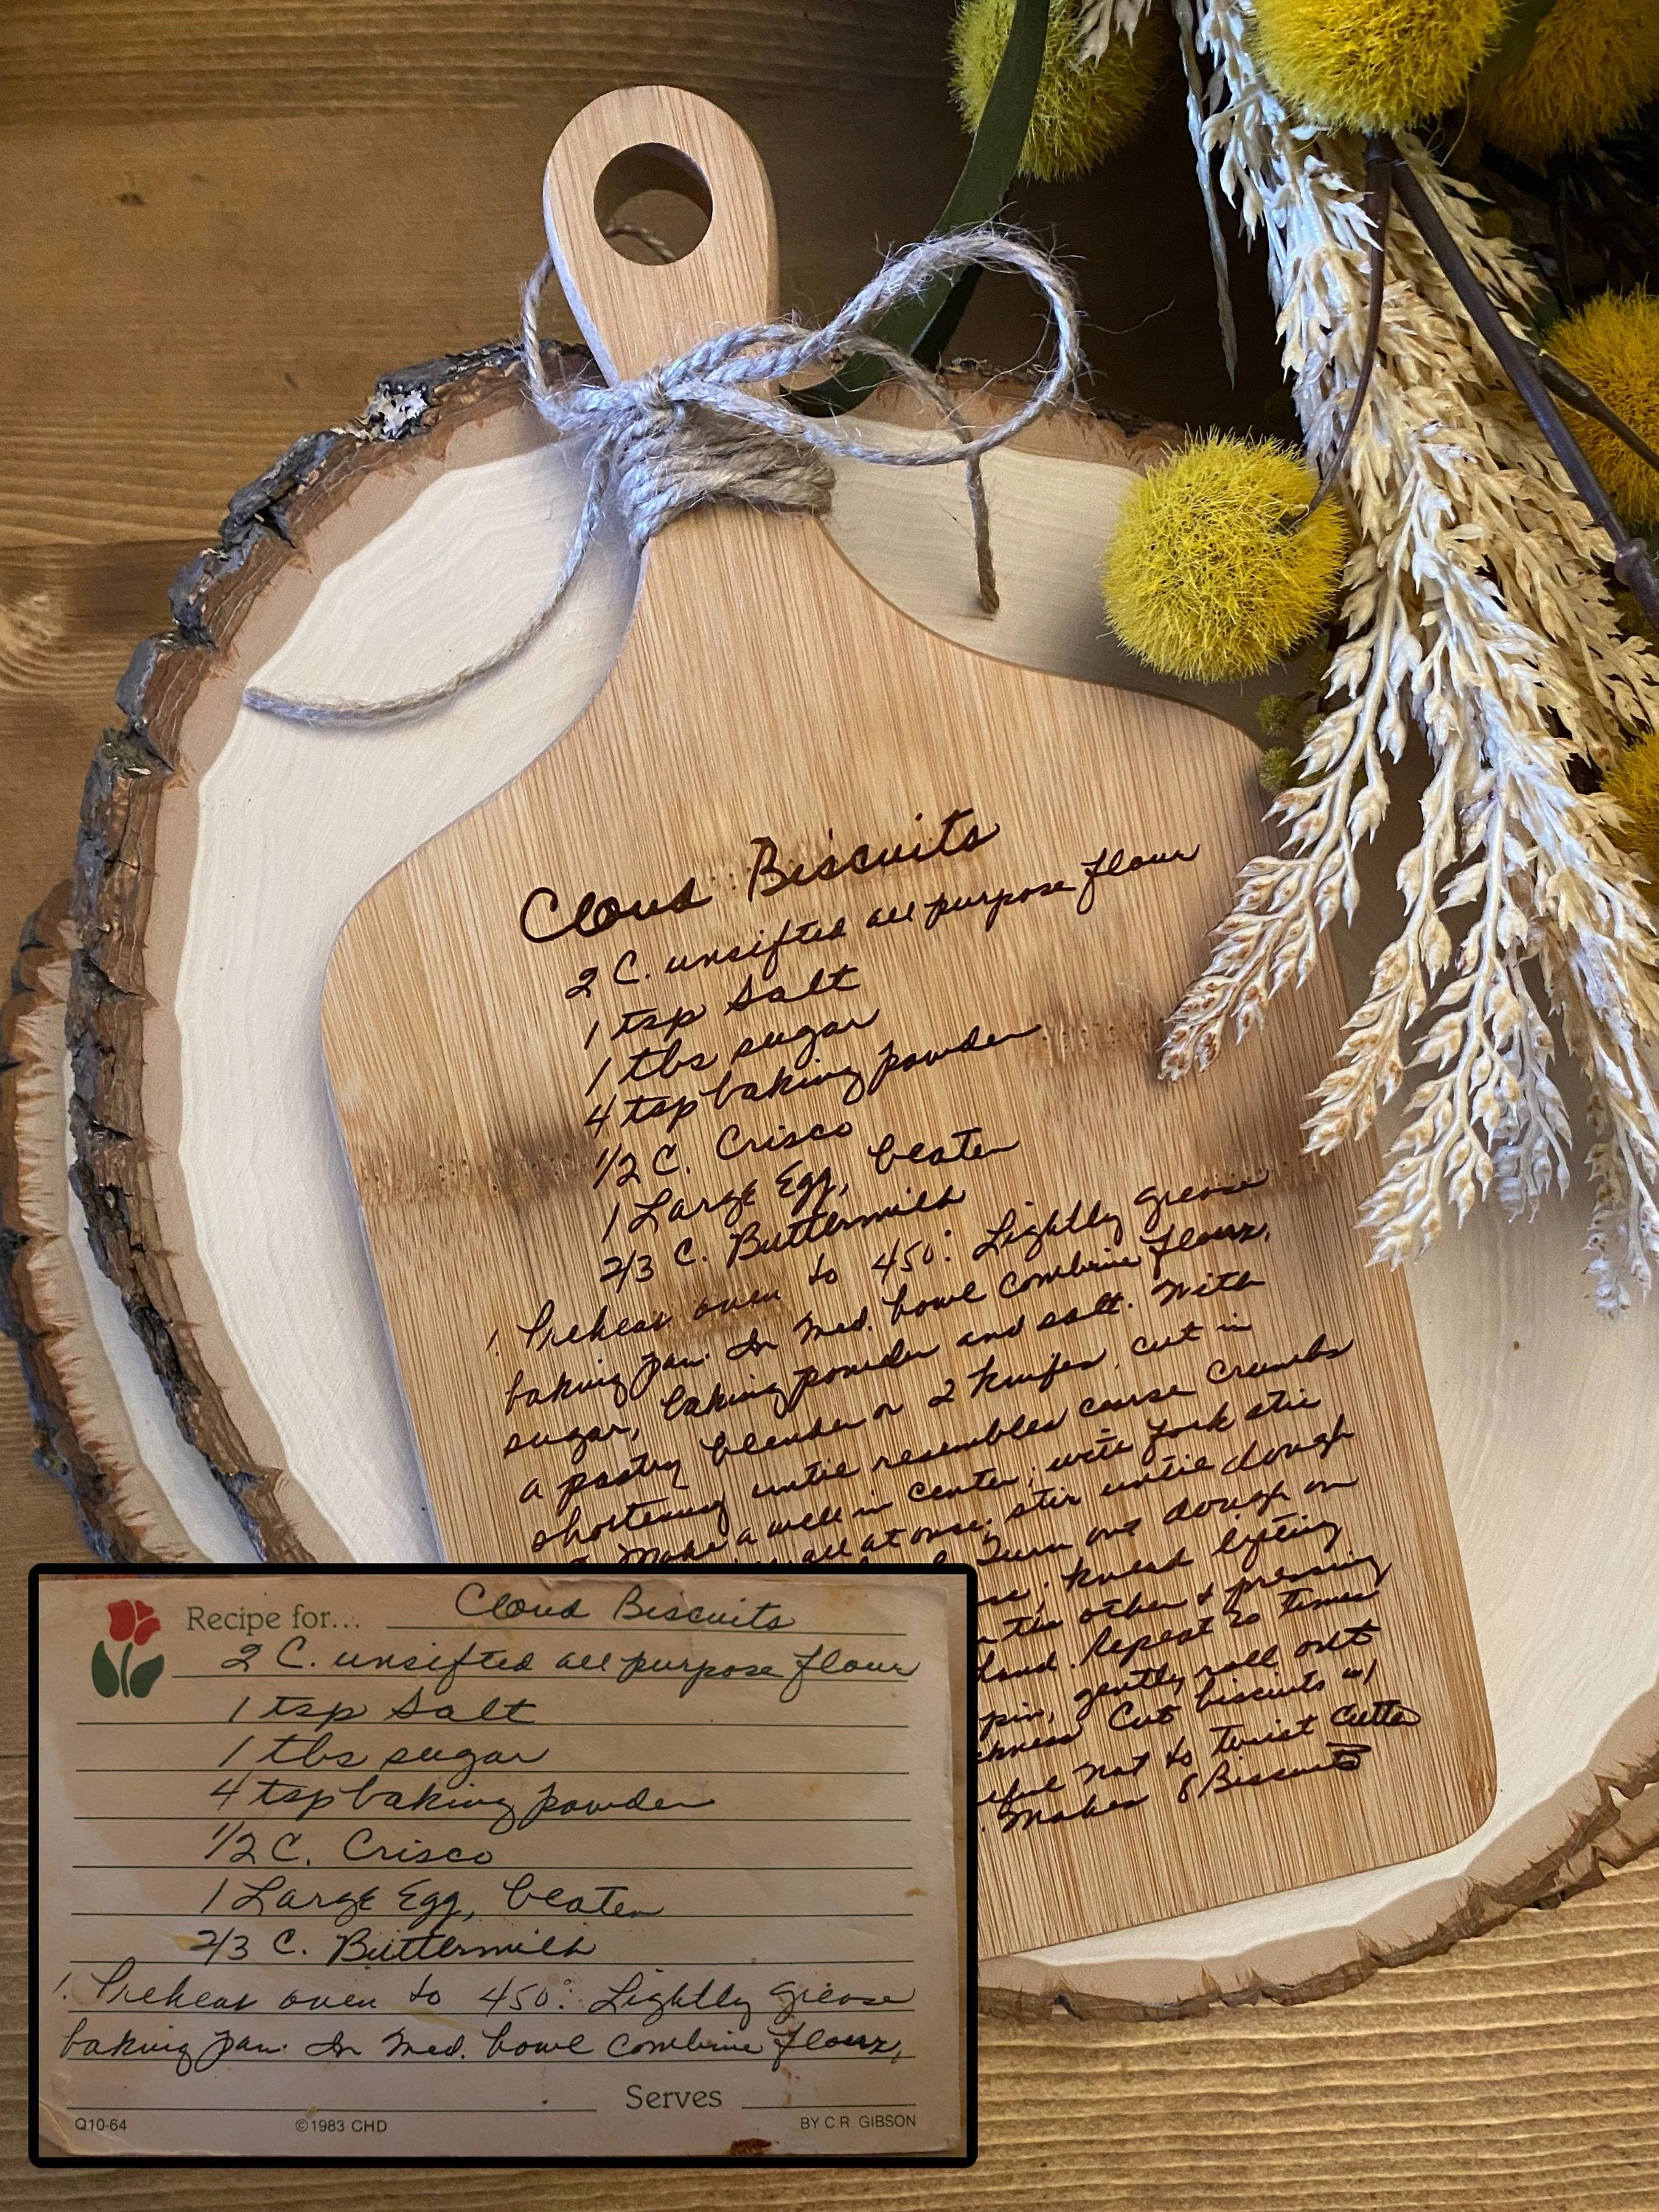 Cloud Biscuits
2 C. unsifted all purpose flour
1 tsp Salt
1 tbs sugar
4 tsp baking powder
1/2 C. Crisco
1 Large Egg, beaten
2/3 C. Buttermilk
1. Preheat oven to 450°. Lightly grease
baking pan. In Med. bowl combine flour,
sugar, baking powder and salt. With
a pastry blender or 2 knifes, cut in
shortening until resembles coarse crumbs
Make a well in center; with fork stir
all at once. stir until dough
Turn out dough on
knead lifting
other & pressing
Repeat 20 times
pin, gently roll out
Cut biscuits w/
not to twist cutter
Makes 8 Biscuits
Recipe for... Cloud Biscuits
2 C. unsifted all purpose flour
1 tsp Salt
1 tbs sugar
4 tsp baking powder
1/2 C. Crisco
1 Large Egg, beaten
2/3 C. Buttermilk
1. Preheat oven to 450°. Lightly grease
baking pan. In Med. bowl combine flour,
Serves
Q10-64 ©1983 CHD BY C.R. GIBSON